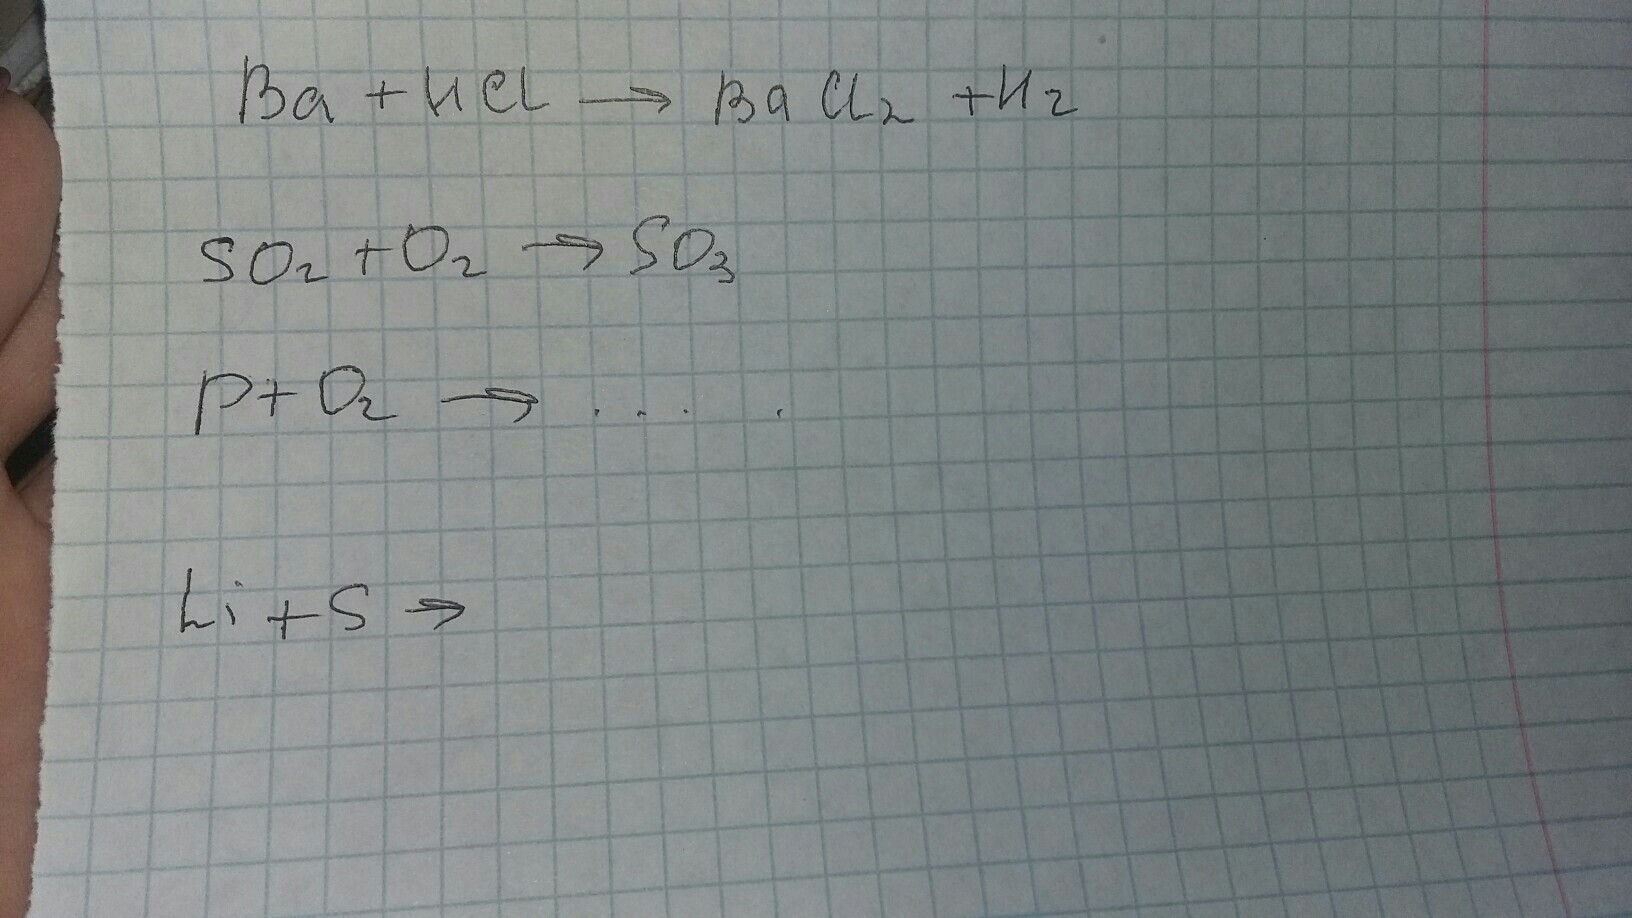 Ba + HCl → BaCl₂ + H₂
SO₂ + O₂ → SO₃
P + O₂ → .... .
Li + S →